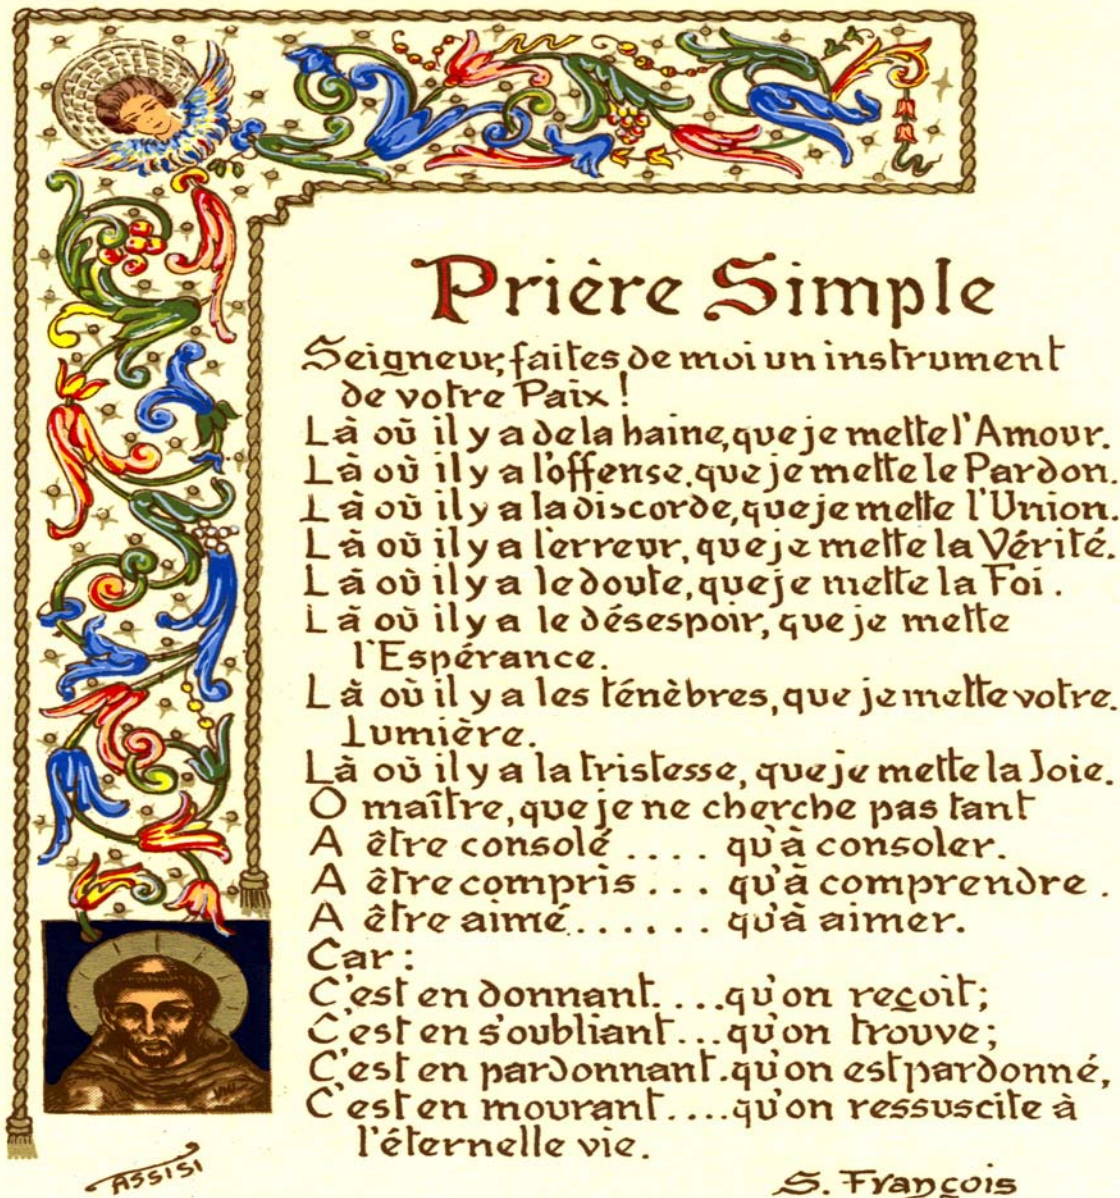 Prière Simple
Seigneur, faites de moi un instrument
de votre Paix !
Là où il y a de la haine, que je mette l'Amour.
Là où il y a l'offense, que je mette le Pardon.
Là où il y a la discorde, que je mette l'Union.
Là où il y a l'erreur, que je mette la Vérité.
Là où il y a le doute, que je mette la Foi.
Là où il y a le désespoir, que je mette
l'Espérance.
Là où il y a les ténèbres, que je mette votre.
Lumière.
Là où il y a la tristesse, que je mette la Joie.
O maître, que je ne cherche pas tant
A être consolé .... qu'à consoler.
A être compris ... qu'à comprendre.
A être aimé ...... qu'à aimer.
Car :
C'est en donnant....qu'on reçoit;
C'est en s'oubliant...qu'on trouve;
C'est en pardonnant.qu'on est pardonné,
C'est en mourant....qu'on ressuscite à
l'éternelle vie.
ASSISI
S. François